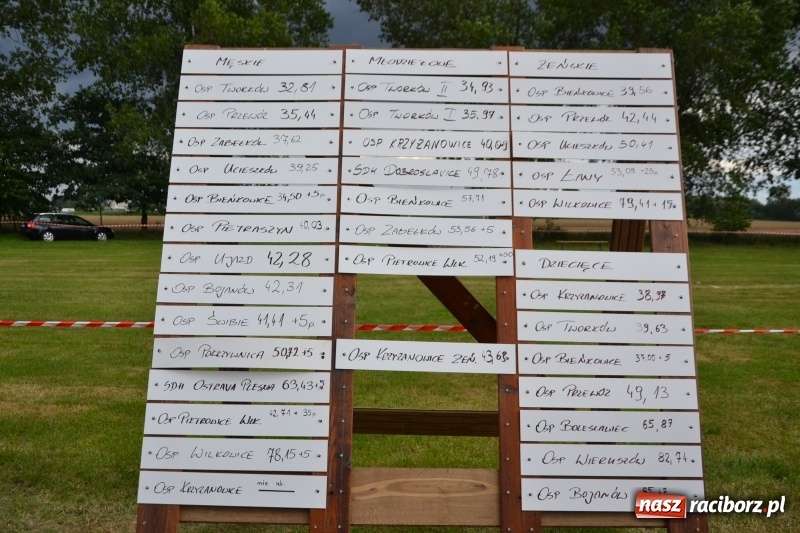 MĘSKIE
OSP TWORKÓW 32,81
OSP PRZEWÓZ 35,44
OSP ZABEŁKÓW 37,62
OSP UCIESZKÓW 39,25
OSP BIEŃKOWICE 34,50 +5p
OSP PIETRASZYN 40,03
OSP UJAZD 42,28
OSP BOJANÓW 42,31
OSP ŚWIBIE 41,41 +5p
OSP POKRZYWNICA 50,72 +5
SDH OSTRAVA PLESNA 63,43+5
OSP PIETROWICE WLK. 42,71 + 35p
OSP WILKOWICE 78,15+5
OSP KRZYŻANOWICE nie uk.
MŁODZIEŻOWE
OSP TWORKÓW II 34,93
OSP TWORKÓW I 35,97
OSP KRZYŻANOWICE 40,09
SDH DOBROSLAVICE 49,78
OSP BIEŃKOWICE 57,71
OSP ZABEŁKÓW 53,56 +5
OSP PIETROWICE WLK. 52,19
OSP KRZYŻANOWICE ŻEŃ. 43,68
ŻEŃSKIE
OSP BIEŃKOWICE 39,56
OSP PRZEWÓZ 42,44
OSP UCIESZKÓW 50,41
OSP ŁANY 53,09 +25p
OSP WILKOWICE 79,41 +15
DZIECIĘCE
OSP KRZYŻANOWICE 38,97
OSP TWORKÓW 39,63
OSP BIEŃKOWICE +5
OSP PRZEWÓZ 49,13
OSP BOLESŁAWIEC 65,87
OSP WIERUSZÓW 82,74
OSP BOJANÓW
nasz raciborz.pl